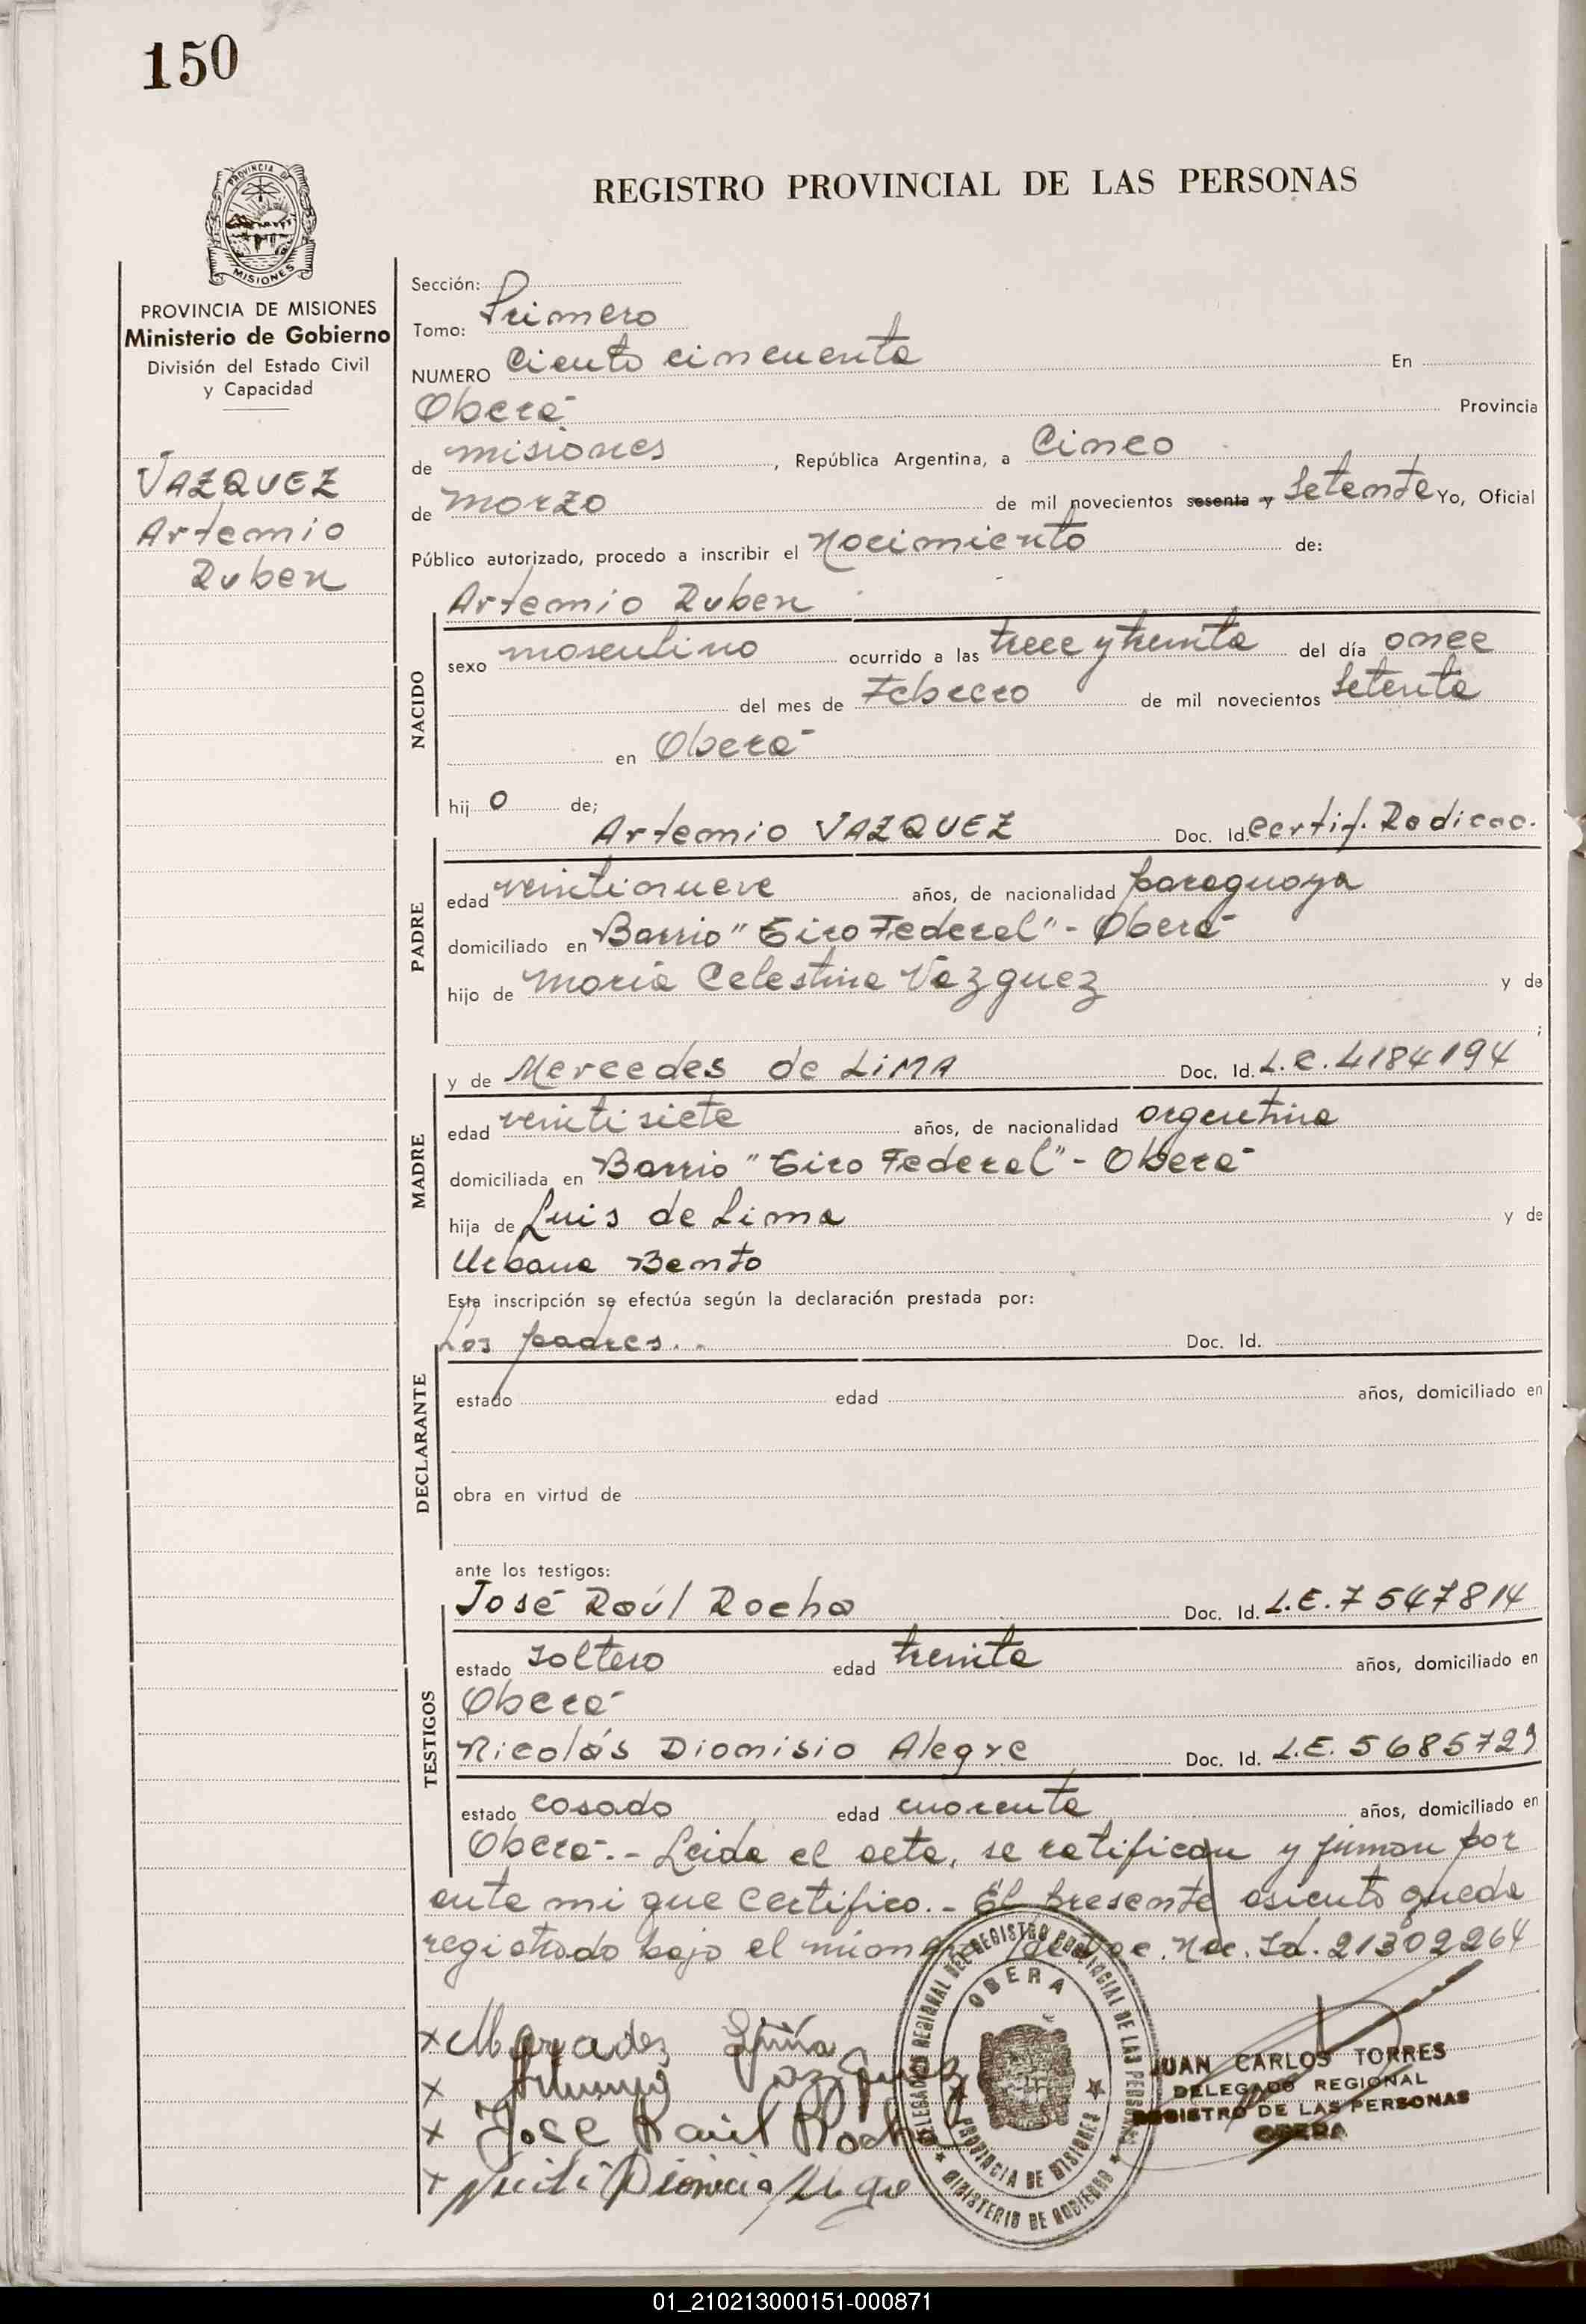 150
REGISTRO PROVINCIAL DE LAS PERSONAS
PROVINCIA DE
MISIONES
PROVINCIA DE MISIONES
Ministerio de Gobierno
División del Estado Civil
y Capacidad
VAZQUEZ
Artemio
Ruben
Sección:
Tomo: Primero
NUMERO Ciento cincuenta En
Oberá Provincia
de misiones, República Argentina, a Cinco
de marzo de mil novecientos sesenta y Setenta Yo, Oficial
Público autorizado, procedo a inscribir el Nacimiento de:
Artemio Ruben
NACIDO
sexo masculino ocurrido a las trece y treinta del día once
del mes de Febrero de mil novecientos Setenta
en Oberá
hij o de;
Artemio VAZQUEZ Doc. Id. Certif. Radicac.
PADRE
edad veintinueve años, de nacionalidad paraguaya
domiciliado en Barrio "Tiro Federal" - Oberá
hijo de María Celestina Vazquez y de
;
y de Mercedes de LIMA Doc. Id. L.C. 4184194
MADRE
edad veintisiete años, de nacionalidad argentina
domiciliada en Barrio "Tiro Federal" - Oberá
hija de Luis de Lima y de
Urbana Bento
Esta inscripción se efectúa según la declaración prestada por:
Los padres.. Doc. Id.
DECLARANTE
estado edad años, domiciliado en
obra en virtud de
ante los testigos:
José Raúl Rocha Doc. Id. L.E. 7547814
TESTIGOS
estado soltero edad treinta años, domiciliado en
Oberá
Nicolás Dionisio Alegre Doc. Id. L.E. 5685729
estado casado edad cuarenta años, domiciliado en
Oberá.- Leida el acta, se ratifican y firman por
ante mi que Certifico.- El presente asiento queda
registrado bajo el de Doc. Nac. Id. 21302264
x
x Vazquez
x Jose Raul Rocha
x Dionicio
DELEGACION REGIONAL DEL REGISTRO PROVINCIAL DE LAS PERSONAS
OBERA
PROVINCIA DE MISIONES
MINISTERIO DE GOBIERNO
JUAN CARLOS TORRES
DELEGADO REGIONAL
REGISTRO DE LAS PERSONAS
OBERA
01_210213000151-000871